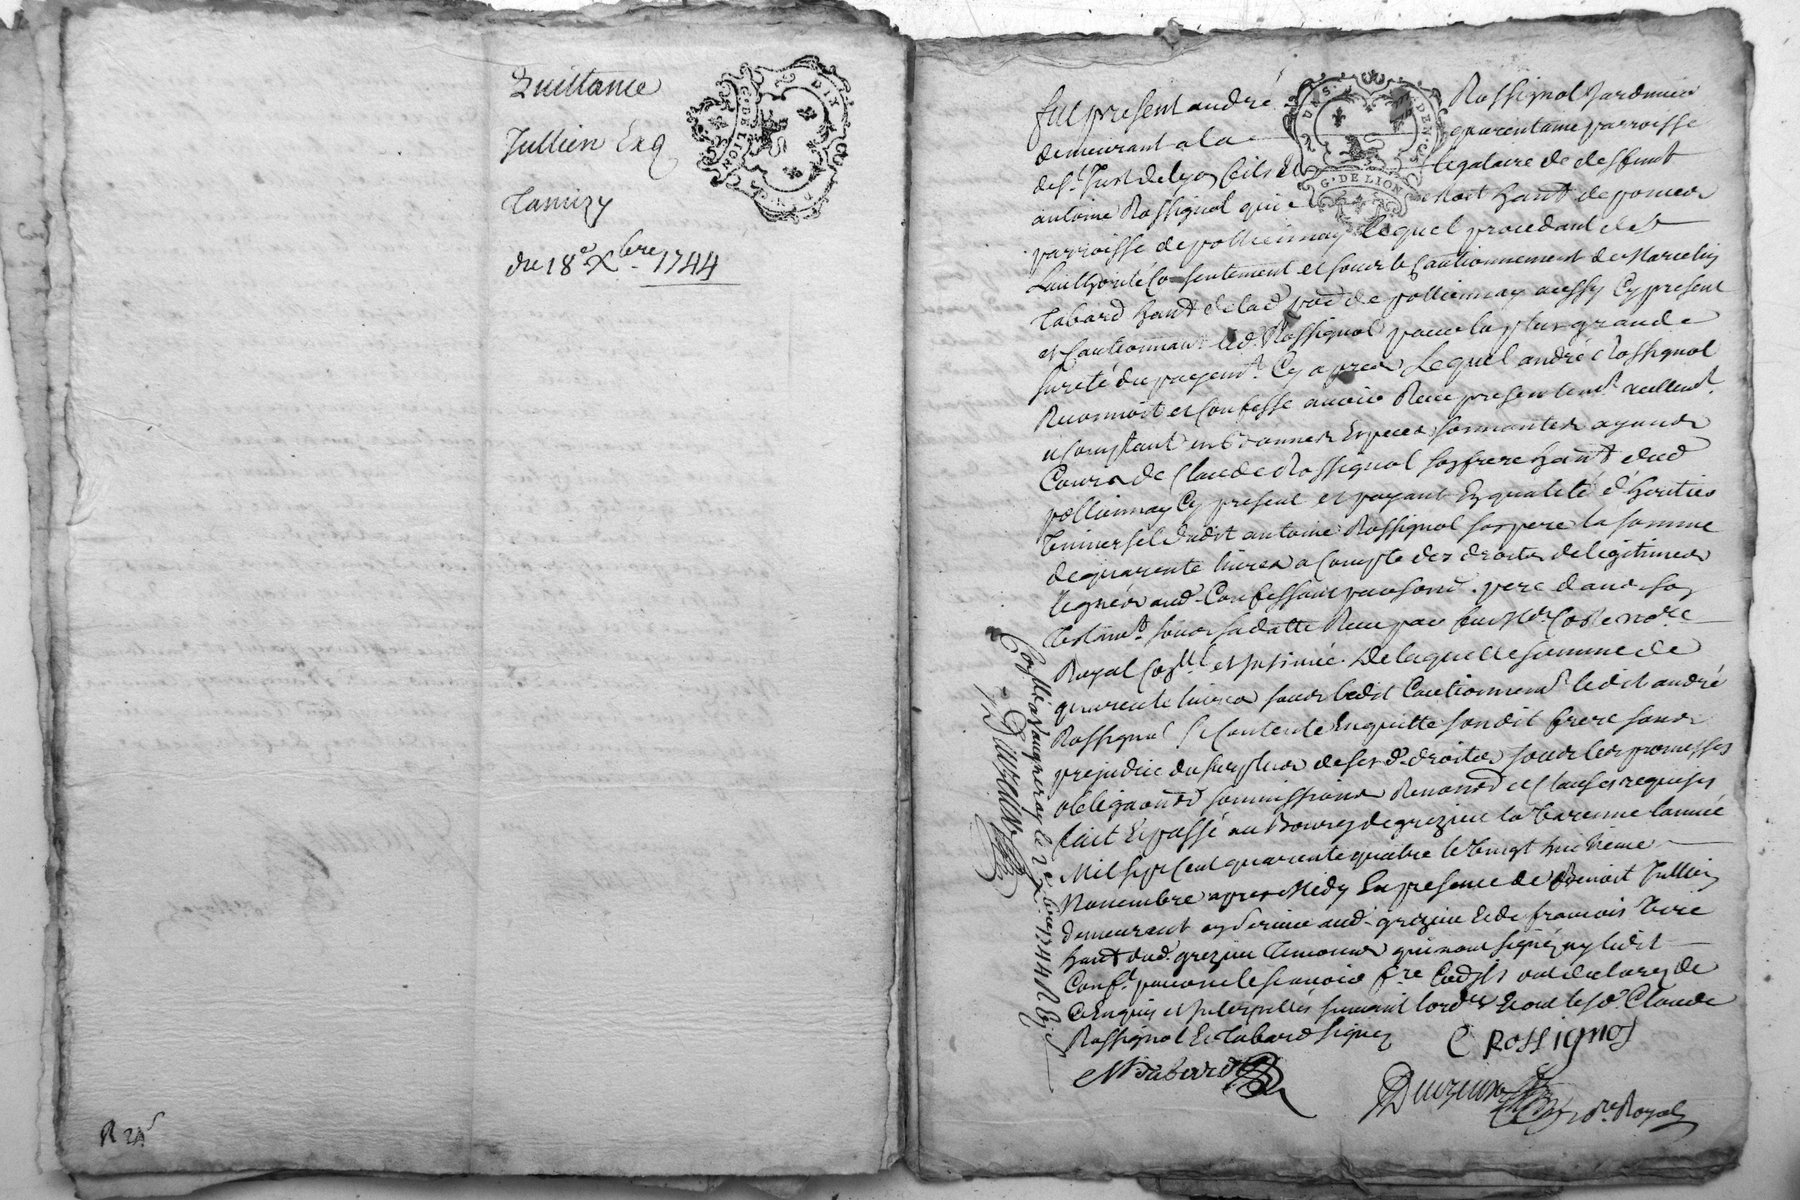 Quittance
Jullien Exq
Tamizy
du 18e Xbre 1744
DIX
Gd DE LION
R 24s
fut present andré Rossignol Jardinier
demeurant a la quarentaine parroisse
de St Just de Lyon fils et legataire de deffunt
antoine Rossignol qui etoit hant de
parroisse de pollionnay lequel procedant de
Lauthorité Consentement et sous le Cautionnement de Marcelin
Tabard hant de lad. par de pollionnay aussy Cy present
et Cautionnant led. Rossignol pour la plus grande
sureté du payemt. Cy apres Lequel andré Rossignol
Reconnoit et Confesse avoir Receu presentemt. reellemt.
et Comptant en bonnes Especes sonnantes ayans
Cours de Claude Rossignol son frere hant dud
pollionnay Cy present et payant En qualité d'heritier
Universel dudit antoine Rossignol son pere la somme
de quarente livres a Compte des droits de legitimes
legués aud. Confessant par sond. pere dans son
Testamt. sous sa datte Receu par Me Coste nore
Royal et Insinué. De laquelle somme de
quarente livres sous ledit Cautionnemt. ledit andré
Rossignol se Contente En quitte sondit frere sans
prejudice du surplus de ses d. droits sous les promesses
obligaons soumissions Renons et Clauses requises
fait et passé au Bourg de grezieu la Varenne l'année
Mil sept Cent quarente quatre le Vingt huitieme
Novembre apres Midy En presence de Benoit Jullien
demeurant aud. grezieu et de francois
hant dud. grezieu Temoins qui n'ont signé ny ledit
Conft. pour ne le scavoir fre
Enquis et Interpellés suivant lordce Et ont les d. Claude
Rossignol Et Tabard signez
C ROSSIGNOL
M Tabard
nre Royal
Gd DE LION
Conllé a Vaugneray le 12 Xbre 1744 R